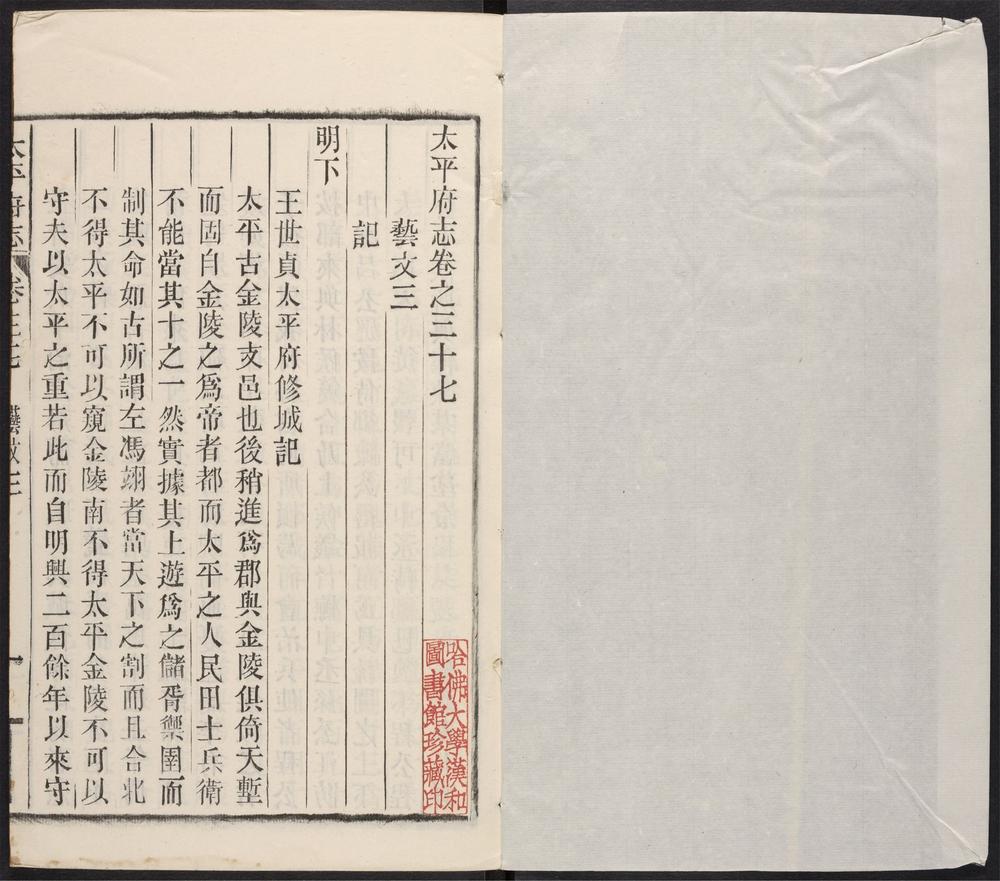 太平府志卷之三十七
藝文三
記
明下
王世貞太平府修城記
太平古金陵支邑也後稍進爲郡與金陵俱倚天塹
而固自金陵之爲帝者都而太平之人民田土兵衛
不能當其十之一然實據其上遊爲之儲胥禦圉而
制其命如古所謂左馮翊者當天下之割而且合北
不得太平不可以窺金陵南不得太平金陵不可以
守夫以太平之重若此而自明興二百餘年以來守
太平府志 卷三七 藝文三 一
哈佛大學漢和
圖書館珍藏印